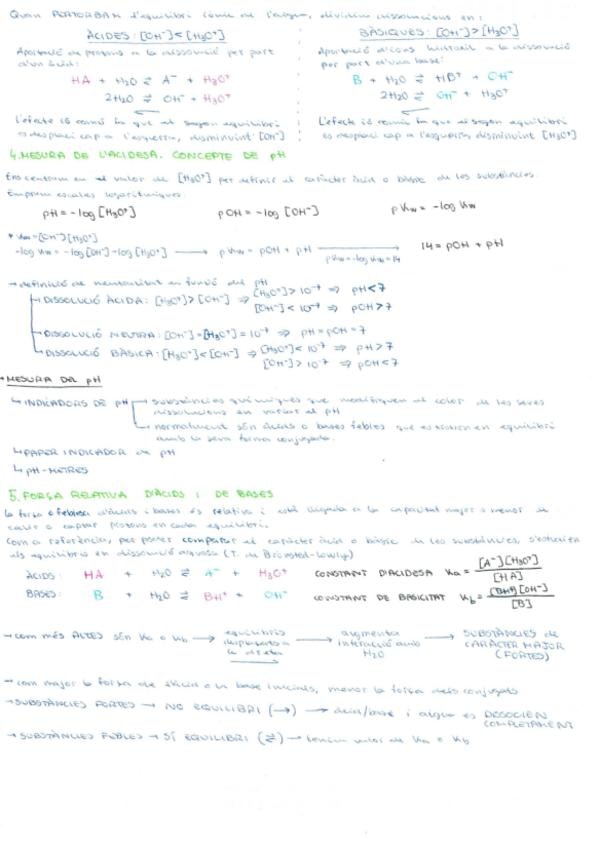 Quan PERTORBAM l'equilibri iònic de l'aigua, dividim dissolucions en:
ÀCIDES: [OH⁻] < [H₃O⁺]
Aportació de protons a la dissolució per part
d'un àcid:
HA + H₂O ⇌ A⁻ + H₃O⁺
2H₂O ⇌ OH⁻ + H₃O⁺
L'efecte ió comú fa que el segon equilibri
es desplaci cap a l'esquerra, disminuint [OH⁻]
BÀSIQUES: [OH⁻] > [H₃O⁺]
Aportació d'ions hidroxil a la dissolució
per part d'una base:
B + H₂O ⇌ HB⁺ + OH⁻
2H₂O ⇌ OH⁻ + H₃O⁺
L'efecte ió comú fa que el segon equilibri
es desplaci cap a l'esquerra, disminuint [H₃O⁺]
4. MESURA DE L'ACIDESA. CONCEPTE DE pH
Ens centram en el valor de [H₃O⁺] per definir el caràcter àcid o bàsic de les substàncies.
Empram escales logarítmiques
pH = -log [H₃O⁺] pOH = -log [OH⁻] pKw = -log Kw
* Kw = [OH⁻][H₃O⁺]
-log Kw = -log [OH⁻] -log [H₃O⁺] → pKw = pOH + pH → 14 = pOH + pH
pKw = -log Kw = 14
→ definició de neutralitat en funció del pH
DISSOLUCIÓ ÀCIDA: [H₃O⁺] > [OH⁻] ⇒ [H₃O⁺] > 10⁻⁷ ⇒ pH < 7
[OH⁻] < 10⁻⁷ ⇒ pOH > 7
DISSOLUCIÓ NEUTRA: [OH⁻] = [H₃O⁺] = 10⁻⁷ ⇒ pH = pOH = 7
DISSOLUCIÓ BÀSICA: [H₃O⁺] < [OH⁻] ⇒ [H₃O⁺] < 10⁻⁷ ⇒ pH > 7
[OH⁻] > 10⁻⁷ ⇒ pOH < 7
* MESURA DEL pH
↳ INDICADORS DE pH → substàncies químiques que modifiquen el color de les seves
dissolucions en variar el pH
→ normalment són àcids o bases febles que existeixen en equilibri
amb la seva forma conjugada.
↳ PAPER INDICADOR de pH
↳ pH-METRES
5. FORÇA RELATIVA D'ÀCIDS I DE BASES
la força o feblesa d'àcids i bases és relativa i està lligada a la capacitat major o menor de
cedir o captar protons en cada equilibri.
Com a referència, per poder comparar el caràcter àcid o bàsic de les substàncies, s'estudien
els equilibris en dissolució aquosa (T. de Brönsted-Lowry)
ÀCIDS: HA + H₂O ⇌ A⁻ + H₃O⁺ CONSTANT D'ACIDESA Ka = [A⁻][H₃O⁺] / [HA]
BASES: B + H₂O ⇌ BH⁺ + OH⁻ CONSTANT DE BASICITAT Kb = [BH⁺][OH⁻] / [B]
→ com més ALTES són Ka o Kb → equilibris desplaçats a la dreta → augmenta interacció amb H₂O → SUBSTÀNCIES de CARÀCTER MAJOR (FORTES)
→ com major la força de l'àcid o la base inicials, menor la força dels conjugats
→ SUBSTÀNCIES FORTES → NO EQUILIBRI (→) → àcid/base i aigua es DISSOCIEN
COMPLETAMENT
→ SUBSTÀNCIES FEBLES → SÍ EQUILIBRI (⇌) → tenim valor de Ka o Kb